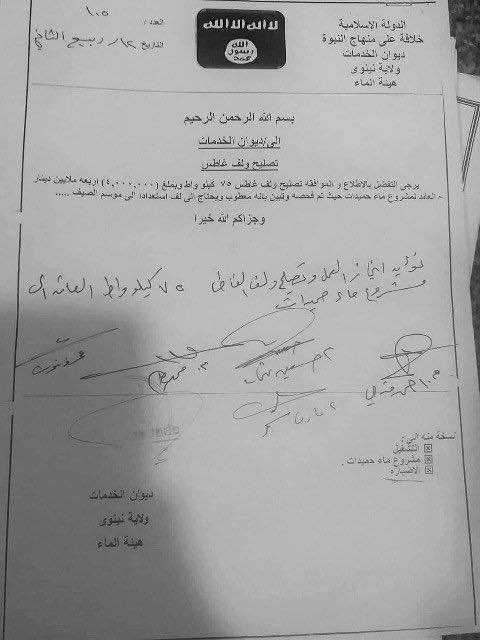 الدولة الاسلامية
خلافة على منهاج النبوة
ديوان الخدمات
ولاية نينوى
هيئة الماء
لا اله الا الله
الله
رسول
محمد
العدد / ١٠٥
التاريخ ١٢ / ربيع الثاني
بسم الله الرحمن الرحيم
الى/ديوان الخدمات
تصليح ولف غاطس
يرجى التفضل بالاطلاع و الموافقه تصليح ولف غاطس ٧٥ كيلو واط وبمبلغ (٤,٠٠٠,٠٠٠) اربعه ملايين دينار
العائد لمشروع ماء حميدات حيث تم فحصه وتبين بانه معطوب ويحتاج الى لف استعدادا الى موسم الصيف .....
وجزاكم الله خيرا
نؤيد انجاز العمل وتصليح ولف الغاطس ٧٥ كيلو واط العائد الى
مشروع ماء حميدات
نسخة منه الى :
التشغيل
مشروع ماء حميدات .
الاضبارة
ديوان الخدمات
ولاية نينوى
هيئة الماء